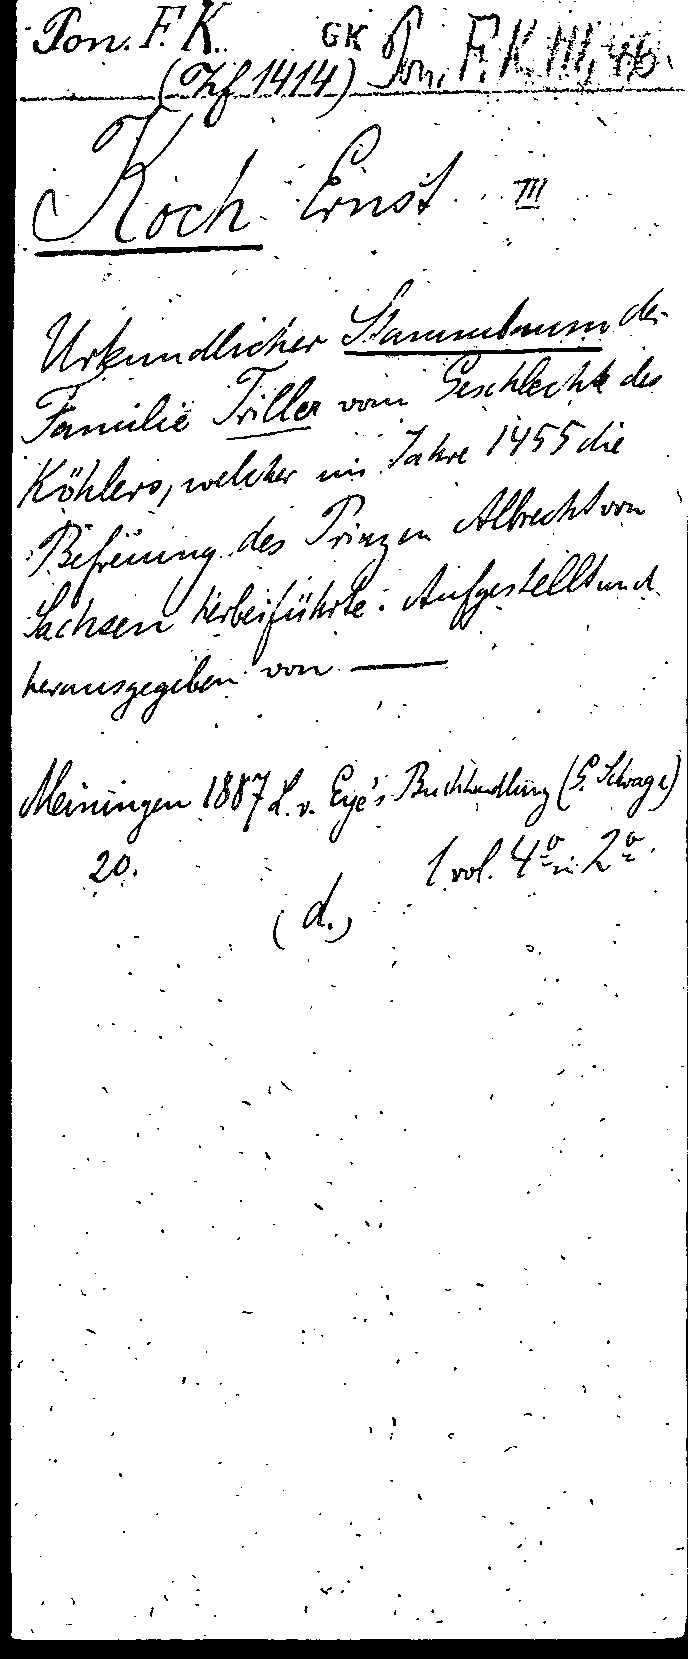 Pon. F. K. GK Pon. F. K. III, 46.
(Zf 1414)
Koch Ernst III
Urkundlicher Stammbaum der
Familie Triller vom Geschlecht des
Köhlers, welcher im Jahre 1455 die
Befreiung des Prinzen Albrecht von
Sachsen herbeiführte. Aufgestellt und
herausgegeben von —
Meiningen 1887 L. v. Eye's Buchhandlung
20. 1 vol. 4º in 2º.
(d.)